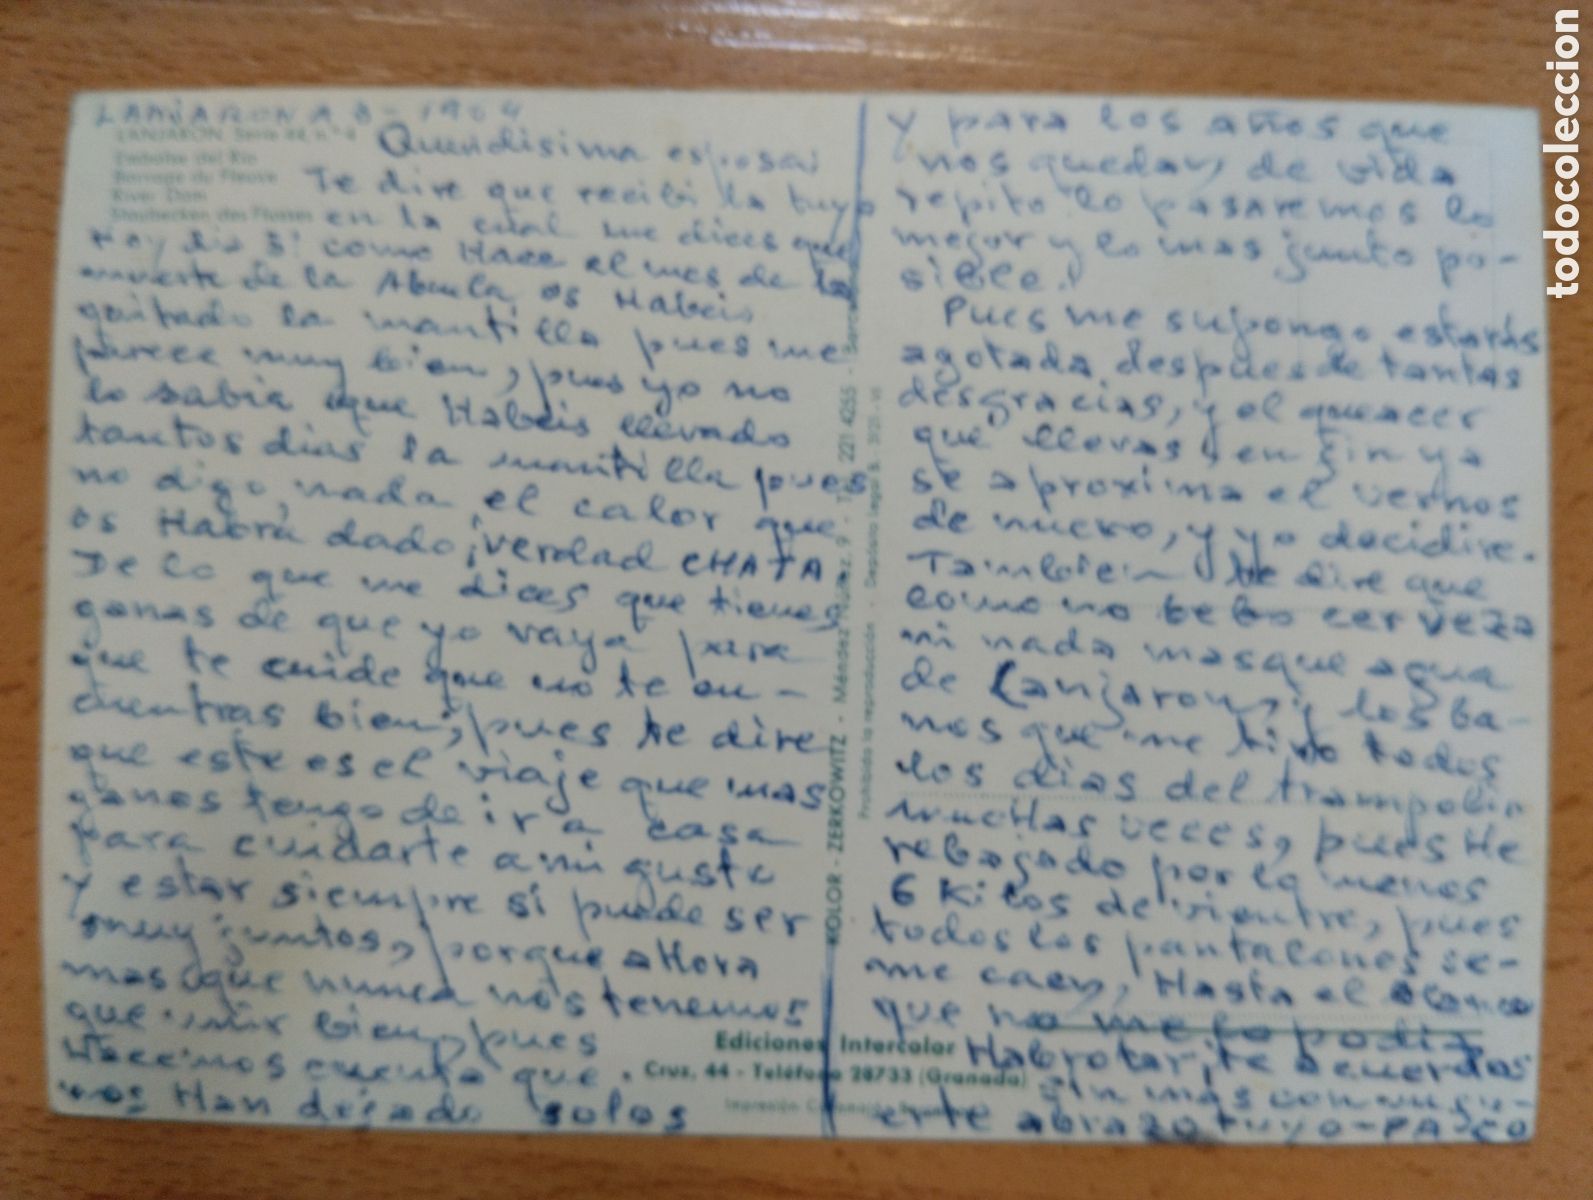 LANJARON A 8-1964
LANJARON. Serie
Embalse del Rio
Barrage du Fleuve
River Dam
Staubecken des Flusses
Queridisima esposa:
Te dire que recibi la tuya
en la cual me dices que
Hoy dia 3! como Hace el mes de la
muerte de la Abuela os Habeis
quitado la mantilla pues me
parece muy bien, pues yo no
lo sabia que Habeis llevado
tantos dias la mantilla pues
no digo nada el calor que
os Habra dado, ¡verdad CHATA
De lo que me dices que tienes
ganas de que yo vaya para
que te cuide que no te en-
cuentras bien, pues te dire
que este es el viaje que mas
ganas tengo de ir a casa
para cuidarte a mi gusto
y estar siempre si puede ser
muy juntos, porque aHora
mas que nunca nos tenemos
que unir bien, pues
Hacemos cuenta que
nos Han dejado solos
y para los años que
nos quedan, de vida
repito lo pasaremos lo
mejor y lo mas junto po-
sible!
Pues me supongo estarás
agotada despues de tantas
desgracias, y el queacer
que llevas, en fin ya
se aproxima el vernos
de nuevo, y yo decidire.
Tambien te dire que
como no bebo cerveza
ni nada mas que agua
de Lanjaron, y los ba-
nos que me tiro todos
los dias del trampolin
mucHas veces, pues He
rebajado por lo menos
6 Kilos de vientre, pues
todos los pantalones se-
me caen, Hasta el blanco
que no me lo podia
Habrotar, te acuerdas
sin mas con un fu-
erte abrazo tuyo-PACO
KOLOR - ZERKOWITZ - Méndez Núñez, 9 - 221 4255 - Barcelona
Prohibida la reproducción - Depósito legal B.
Ediciones Intercolor
Cruz, 44 - Teléfono 28733 (Granada)
todocoleccion